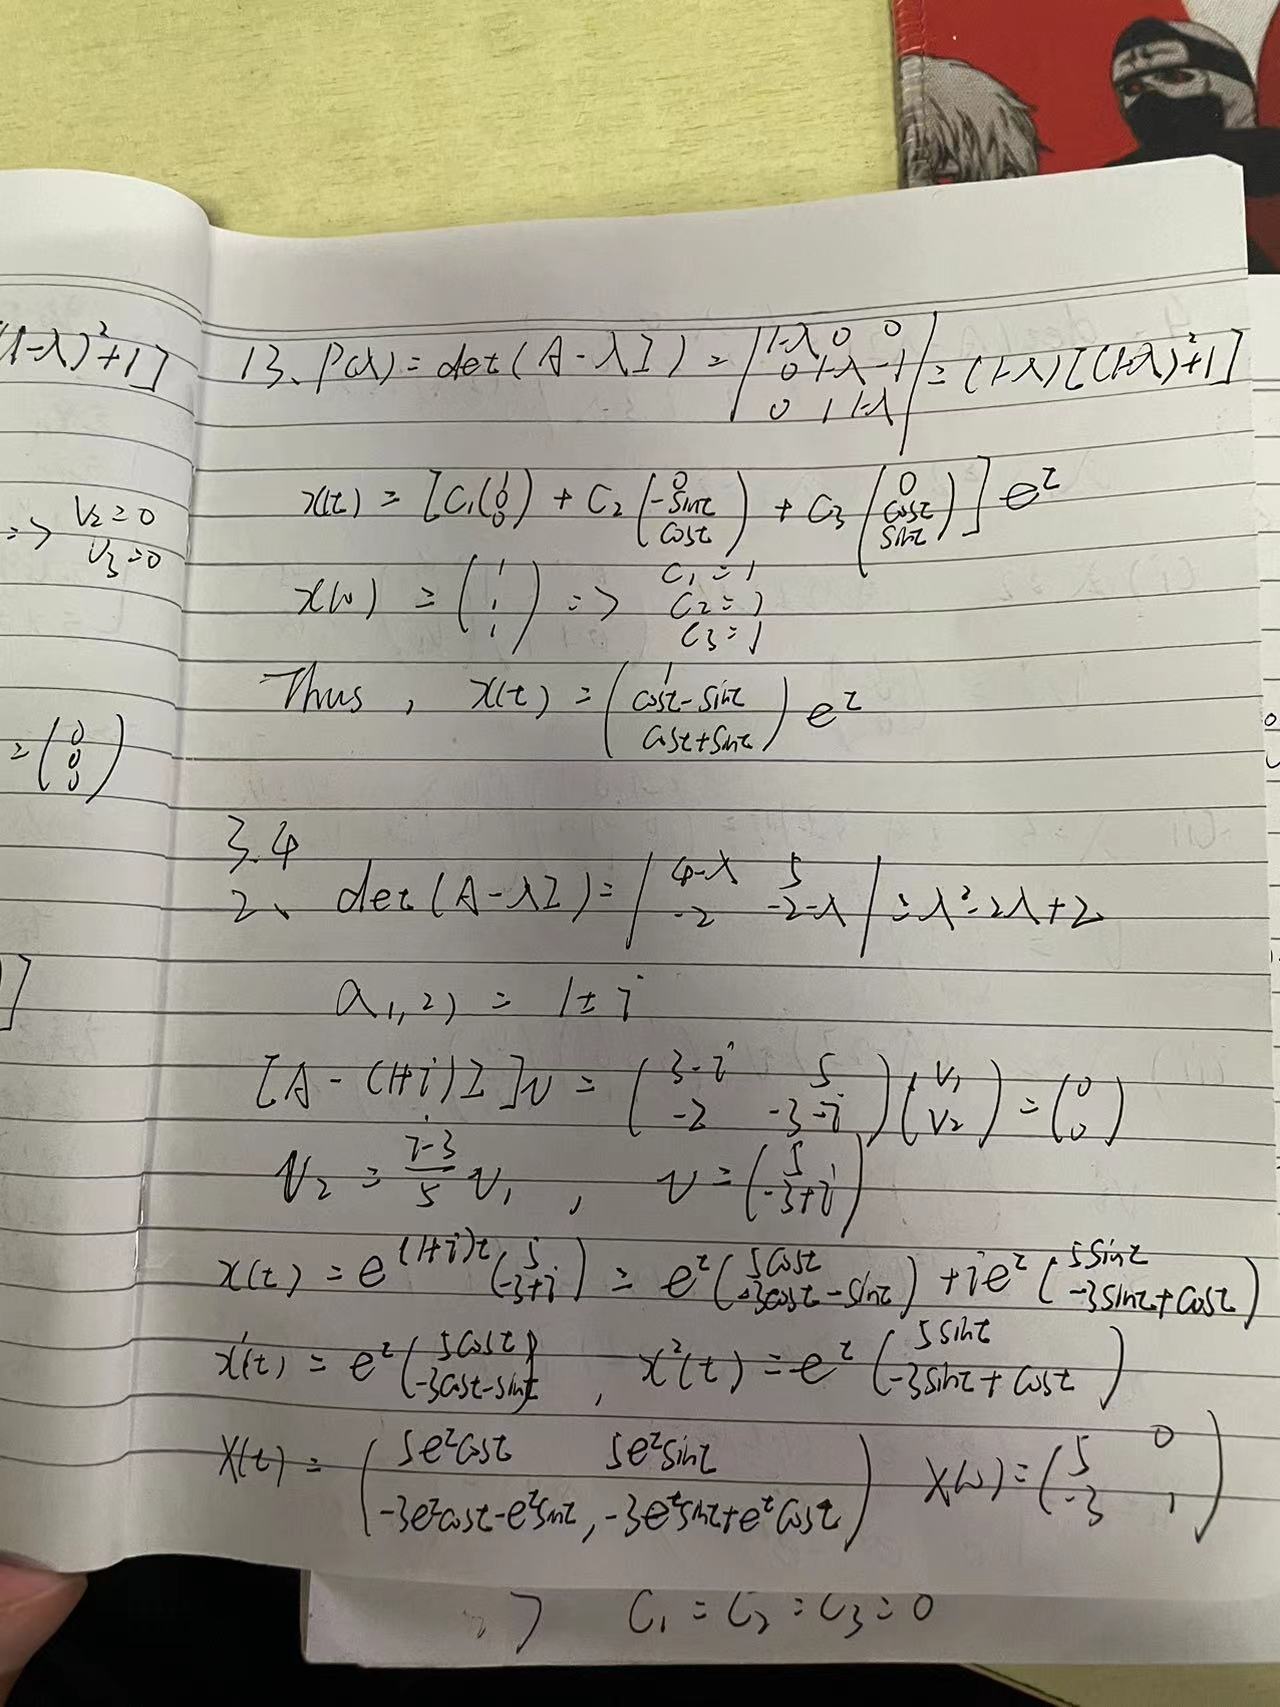 (1-λ)²+1]
=> V₂=0
V₃=0
= (0 0 0)
]
13、P(λ) = det(A-λI) = |1-λ 0 0; 0 1-λ -1; 0 1 1-λ| = (1-λ)[(1-λ)²+1]
x(t) = [C₁(1 0 0) + C₂(0 -sint cost) + C₃(0 cost sint)] eᵗ
x(0) = (1 1 1) => C₁=1 C₂=1 C₃=1
Thus, x(t) = (1 cost-sint cost+sint) eᵗ
3.4
2、 det(A-λI) = |4-λ 5; -2 -2-λ| = λ²-2λ+2
a₁,₂) = 1±i
[A-(1+i)I]v = (3-i 5; -2 -3-i)(V₁ V₂) = (0 0)
V₂ = (i-3)/5 V₁ , v = (5 -3+i)
x(t) = e^(1+i)t (5 -3+i) = eᵗ(5cost -3cost-sint) + ieᵗ(5sint -3sint+cost)
x¹(t) = eᵗ(5cost -3cost-sint) , x²(t) = eᵗ(5sint -3sint+cost)
X(t) = (5eᵗcost 5eᵗsint; -3eᵗcost-eᵗsint, -3eᵗsint+eᵗcost) X(0) = (5 0; -3 1)
C₁=C₂=C₃=0